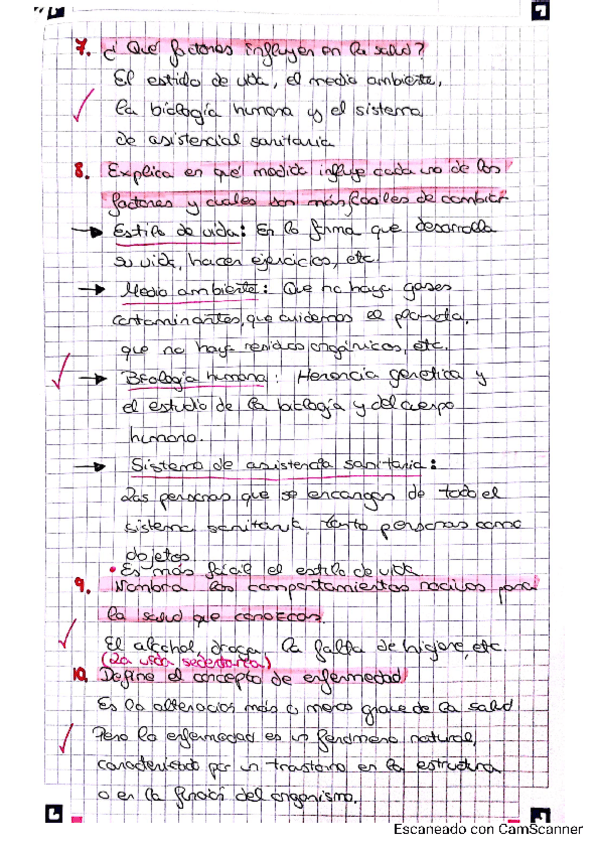 7. ¿Qué factores influyen en la salud?
El estido de vida, el medio ambiente,
la biología humana y el sistema
de asistencial sanitaria
8. Explica en qué medida influye cada uno de los
factores y cuales son más faciles de cambiar
→ Estilo de vida: En la forma que desarrolla
su vida, hacer ejercicios, etc.
→ Medio ambiente: Que no haya gases
contaminantes, que cuidemos el planeta,
que no haya residuos orgánicos, etc.
→ Biología humana: Herencia genética y
el estudio de la biología y del cuerpo
humano.
→ Sistema de asistencia sanitaria:
Las personas que se encargan de todo el
sistema sanitaria, tanto personas como
objetos
• Es más fácil el estilo de vida
9. Nombra los comportamientos nocivos para
la salud que conozcas.
El alcohol, droga, la falta de higiene, etc.
(La vida sedentaria)
10. Define el concepto de enfermedad
Es la alteracios más o menos grave de la salud
Pero la enfermedad es un fenómeno natural,
caracterizado por un trastorno en la estructura
o en la función del organismo.
Escaneado con CamScanner